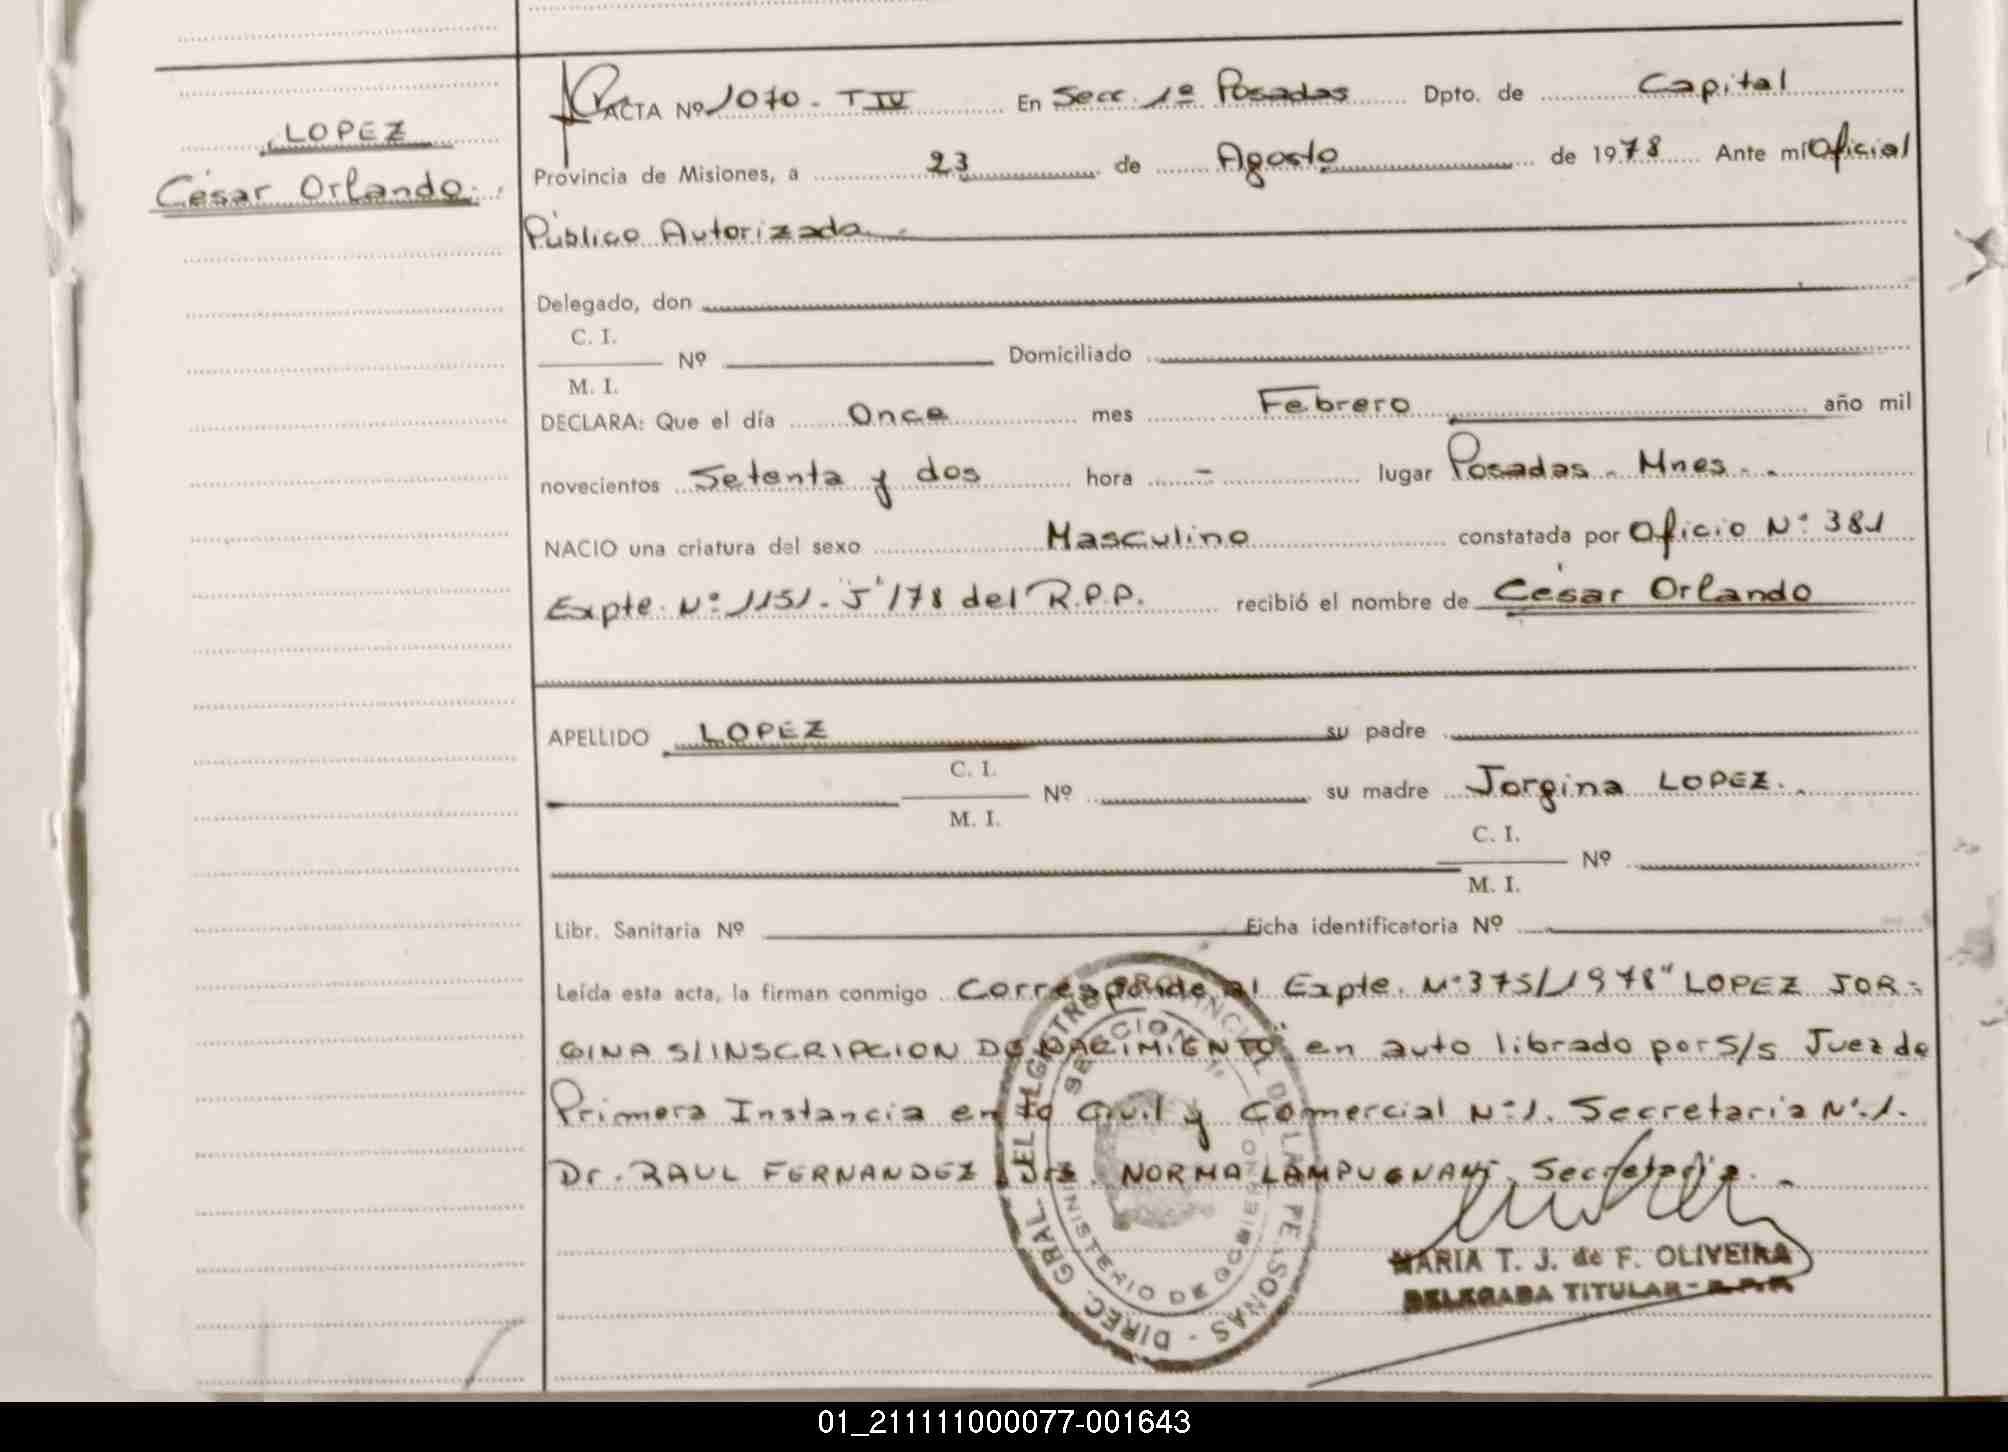 LOPEZ
César Orlando.
ACTA Nº 1070 - T IV En Secc. 1º Posadas Dpto. de Capital
Provincia de Misiones, a 23 de Agosto de 1978 Ante mí Oficial
Público Autorizada.
Delegado, don
C. I.
Nº Domiciliado
M. I.
DECLARA: Que el día Once mes Febrero año mil
novecientos Setenta y dos hora - lugar Posadas - Mnes.
NACIO una criatura del sexo Masculino constatada por Oficio Nº 381
Expte. Nº 1151 - J'/78 del R.P.P. recibió el nombre de César Orlando
APELLIDO LOPEZ su padre
C. I.
Nº su madre Jorgina LOPEZ.
M. I.
C. I.
Nº
M. I.
Libr. Sanitaria Nº Ficha identificatoria Nº
Leída esta acta, la firman conmigo Corresponde al Expte. Nº 375/1978 "LOPEZ JOR-
GINA S/INSCRIPCION DE NACIMIENTO" en auto librado por S/s Juez de
Primera Instancia en lo Civil y Comercial Nº 1. Secretaria Nº 1.
Dr. RAUL FERNANDEZ Juez. NORMA LAMPUGNANI. Secretaria.
DIREC. GRAL. DEL REGISTRO PROVINCIAL DE LAS PERSONAS
SECCION 1ª
MINISTERIO DE GOBIERNO
MARIA T. J. de F. OLIVEIRA
DELEGADA TITULAR - R.P.P.
01_211111000077-001643